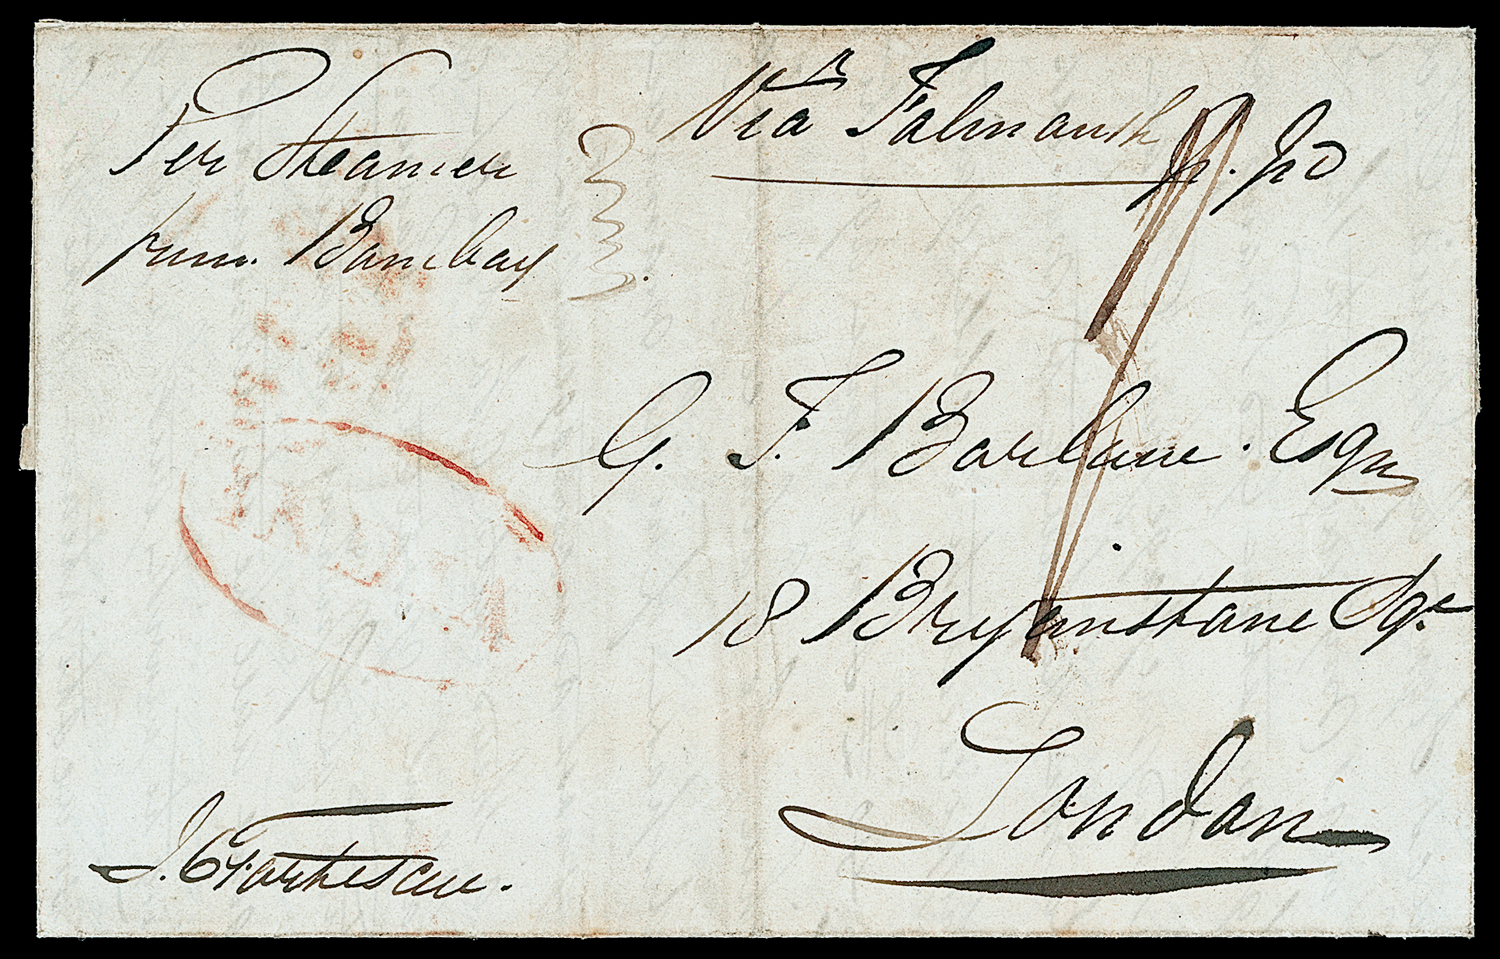 Per Steamer
from Bombay
Viâ Falmouth
p. pd
G. F. Barlow. Esqr
18 Bryanstone Sqr
London